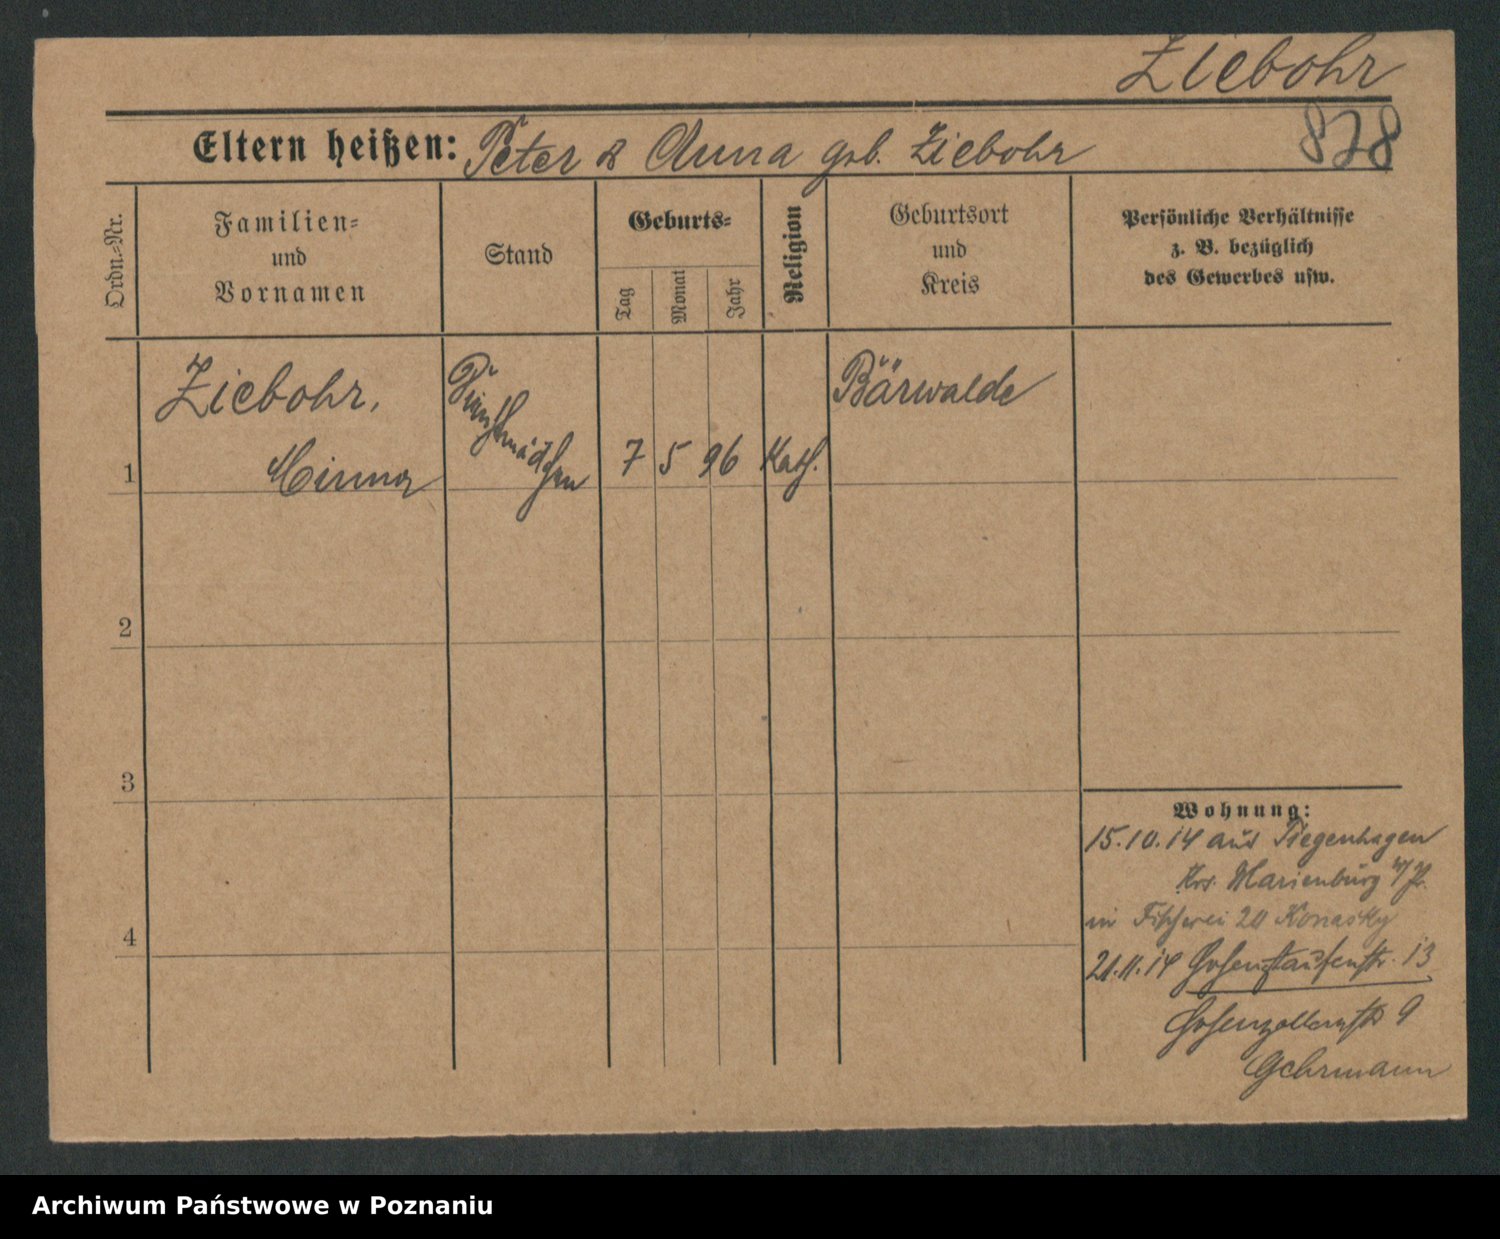 Ziebohr
Eltern heißen: Peter & Anna geb. Ziebohr
828
Ordn.-Nr.
Familien-
und
Vornamen
Stand
Geburts-
Tag
Monat
Jahr
Religion
Geburtsort
und
Kreis
Persönliche Verhältnisse
z. B. bezüglich
des Gewerbes usw.
1
Ziebohr,
Minna
Dienstmädchen
7 5 96 Kath.
Bärwalde
2
3
4
Wohnung:
15.10.14 aus Tiegenhagen
Krs. Marienburg W/Pr.
in Fischerei 20 Konasky
21.11.14 Hohenstaufenstr. 13
Hohenzollernstr 9
Gehrmann
Archiwum Państwowe w Poznaniu